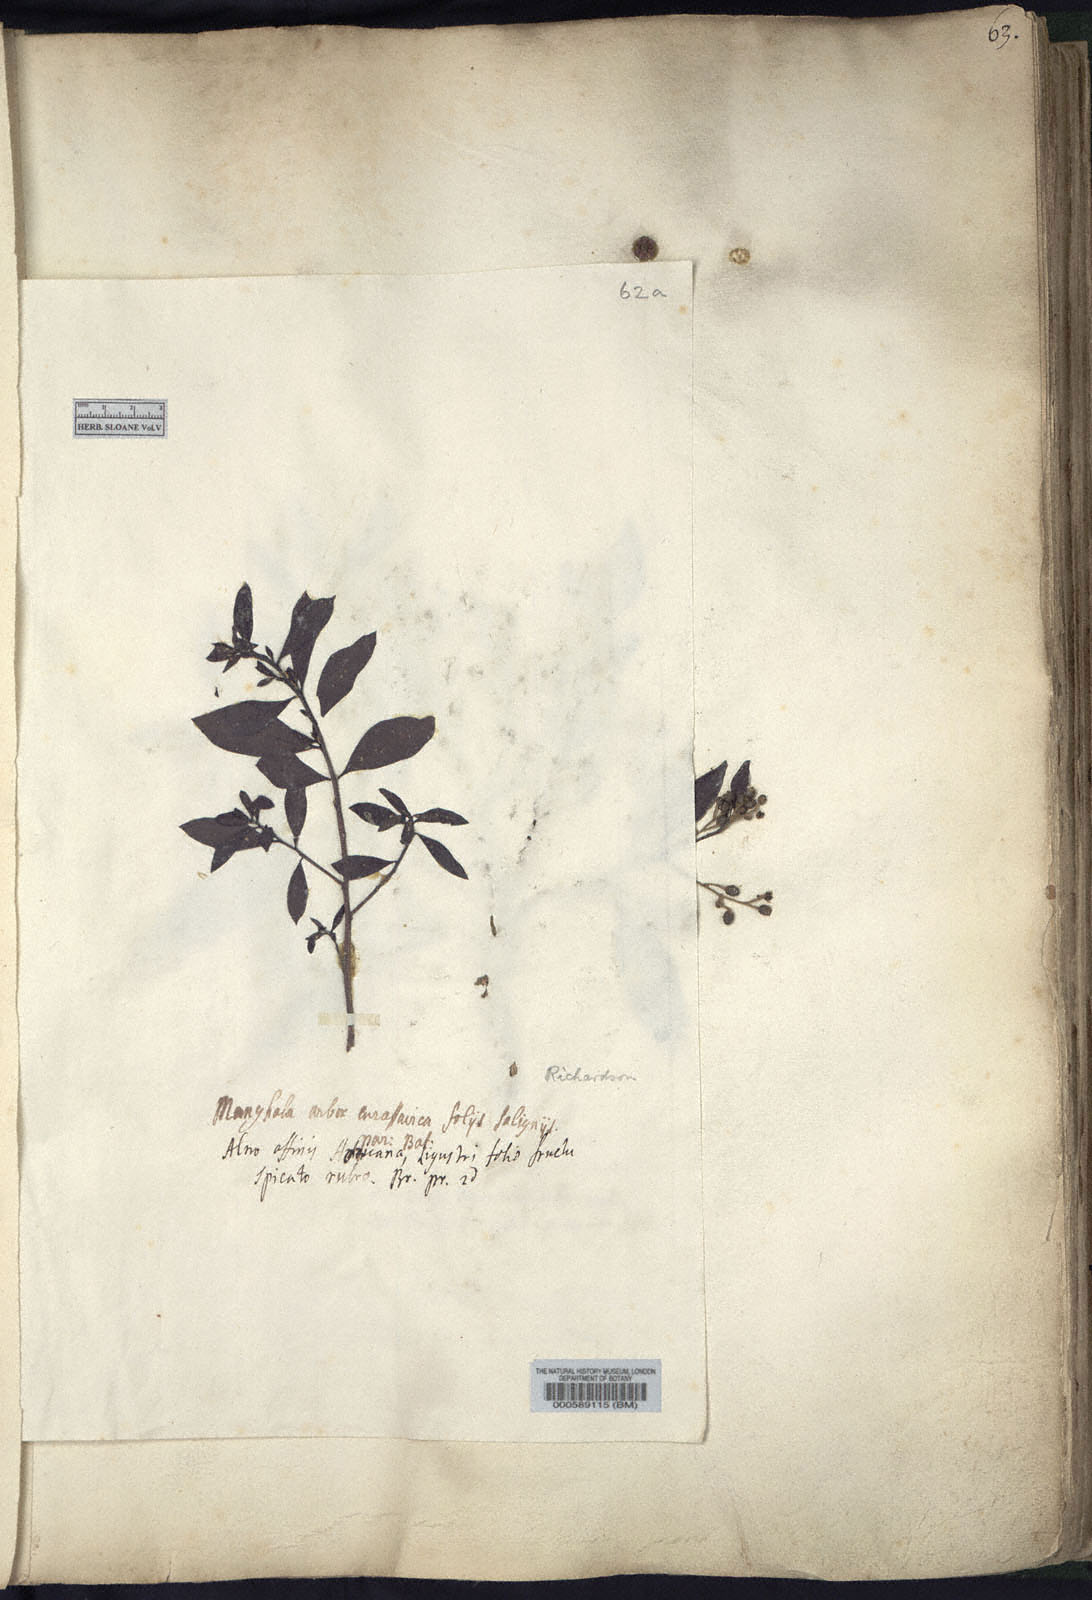 63.
62a
HERB. SLOANE Vol.V
Richardson
Manghala arbor curassavica folijs salignijs.
Alno affinis Africana, Ligustri folio fructu
spicato rubro. Br. pr. 2d
THE NATURAL HISTORY MUSEUM, LONDON
DEPARTMENT OF BOTANY
000589115 (BM)